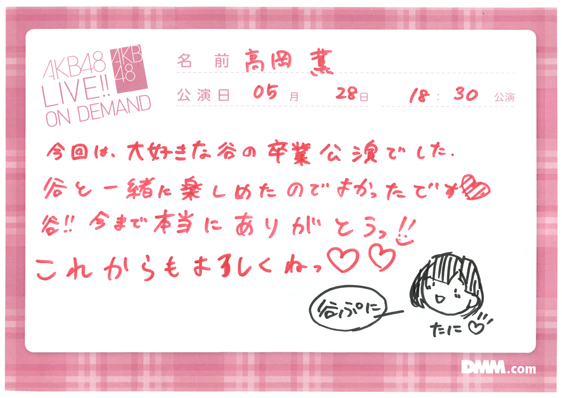 AKB48
LIVE!!
ON DEMAND
AKB
48
名前 高岡 薫
公演日 05月 28日 18:30 公演
今回は、大好きな谷の卒業公演でした.
谷と一緒に楽しめたのでよかったです♡
谷!! 今まで本当にありがとうっ!!
これからもよろしくねっ♡♡
谷ぷに
たに♡
DMM.com